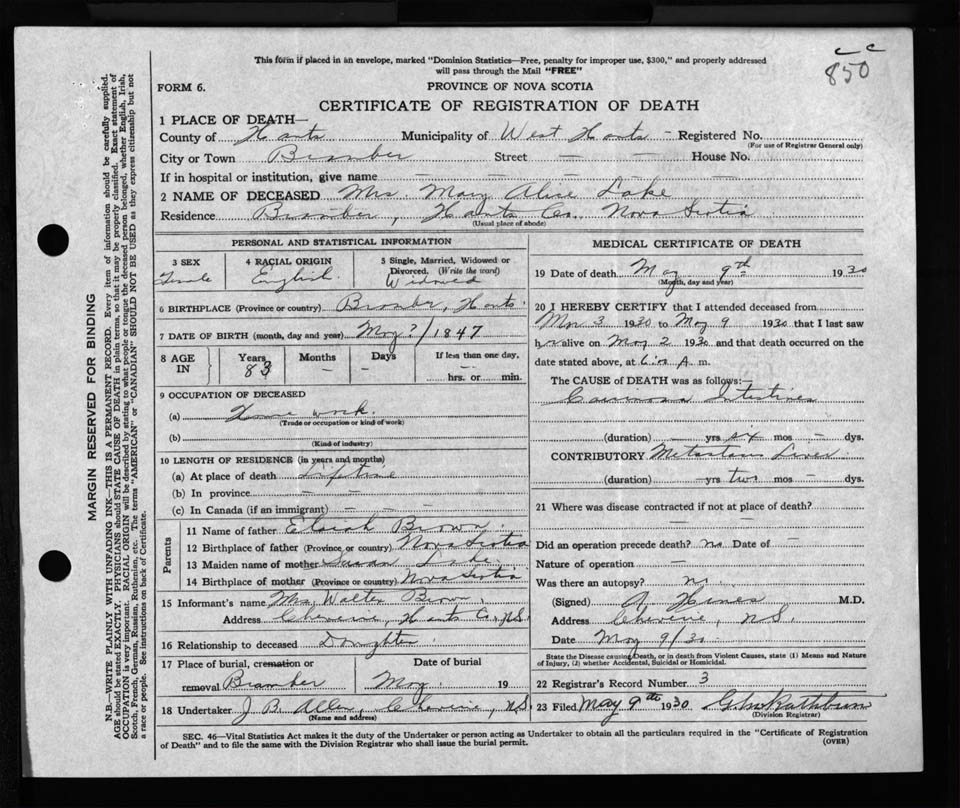 This form if placed in an envelope, marked "Dominion Statistics—Free, penalty for improper use, $300," and properly addressed
will pass through the Mail "FREE"
c c
850
FORM 6.
PROVINCE OF NOVA SCOTIA
CERTIFICATE OF REGISTRATION OF DEATH
1 PLACE OF DEATH—
County of Hants Municipality of West Hants - Registered No.
(For use of Registrar General only)
City or Town Bramber Street — — House No.
If in hospital or institution, give name — — — —
2 NAME OF DECEASED Mrs. Mary Alice Lake
Residence Bramber, Hants Co. Nova Scotia
(Usual place of abode)
PERSONAL AND STATISTICAL INFORMATION
3 SEX
Female
4 RACIAL ORIGIN
English
5 Single, Married, Widowed or
Divorced. (Write the word)
Widowed
6 BIRTHPLACE (Province or country) Bramber, Hants.
7 DATE OF BIRTH (month, day and year) May ?/1847
8 AGE IN
Years
83
Months
—
Days
—
If less than one day.
hrs. or min.
9 OCCUPATION OF DECEASED
(a) Home work.
(Trade or occupation or kind of work)
(b)
(Kind of industry)
10 LENGTH OF RESIDENCE (in years and months)
(a) At place of death Lifetime
(b) In province — —
(c) In Canada (if an immigrant) — —
Parents
11 Name of father Brown.
12 Birthplace of father (Province or country) Nova Scotia
13 Maiden name of mother Susan Lake.
14 Birthplace of mother (Province or country) Nova Scotia
15 Informant's name Mrs. Walter Brown.
Address Cheverie, Hants Co., N.S.
16 Relationship to deceased Daughter.
17 Place of burial, cremation or
removal Bramber
Date of burial
May 19
18 Undertaker J. B. Allen, Cheverie, N.S.
(Name and address)
MEDICAL CERTIFICATE OF DEATH
19 Date of death May 9th 1930
(Month, day and year)
20 I HEREBY CERTIFY that I attended deceased from
1930 to May 9 1930 that I last saw
her alive on May 2 1930 and that death occurred on the
date stated above, at 6:00 A. m.
The CAUSE OF DEATH was as follows:—
Carcinoma Intestines
(duration) — yrs six mos — dys.
CONTRIBUTORY Metastasis Liver
(duration) — yrs two mos — dys.
21 Where was disease contracted if not at place of death?
— —
Did an operation precede death? no Date of —
Nature of operation —
Was there an autopsy? no.
(Signed) A. Hines M.D.
Address Cheverie, N.S.
Date May 9/30
State the Disease causing Death, or in death from Violent Causes, state (1) Means and Nature
of Injury, (2) whether Accidental, Suicidal or Homicidal.
22 Registrar's Record Number 3
23 Filed May 9th 1930 Rathburn
(Division Registrar)
SEC. 46—Vital Statistics Act makes it the duty of the Undertaker or person acting as Undertaker to obtain all the particulars required in the "Certificate of Registration
of Death" and to file the same with the Division Registrar who shall issue the burial permit.
(OVER)
MARGIN RESERVED FOR BINDING
N.B.—WRITE PLAINLY WITH UNFADING INK—THIS IS A PERMANENT RECORD. Every item of information should be carefully supplied.
AGE should be stated EXACTLY. PHYSICIANS should STATE CAUSE OF DEATH in plain terms, so that it may be properly classified. Exact statement of
OCCUPATION is very important. RACIAL ORIGIN will be described by stating to what people or tongue the deceased person belonged, whether English, Irish,
Scotch, French, German, Russian, Ruthenian, etc. The terms "AMERICAN" or "CANADIAN" SHOULD NOT BE USED as they express citizenship but not
a race or people. See instructions on back of Certificate.